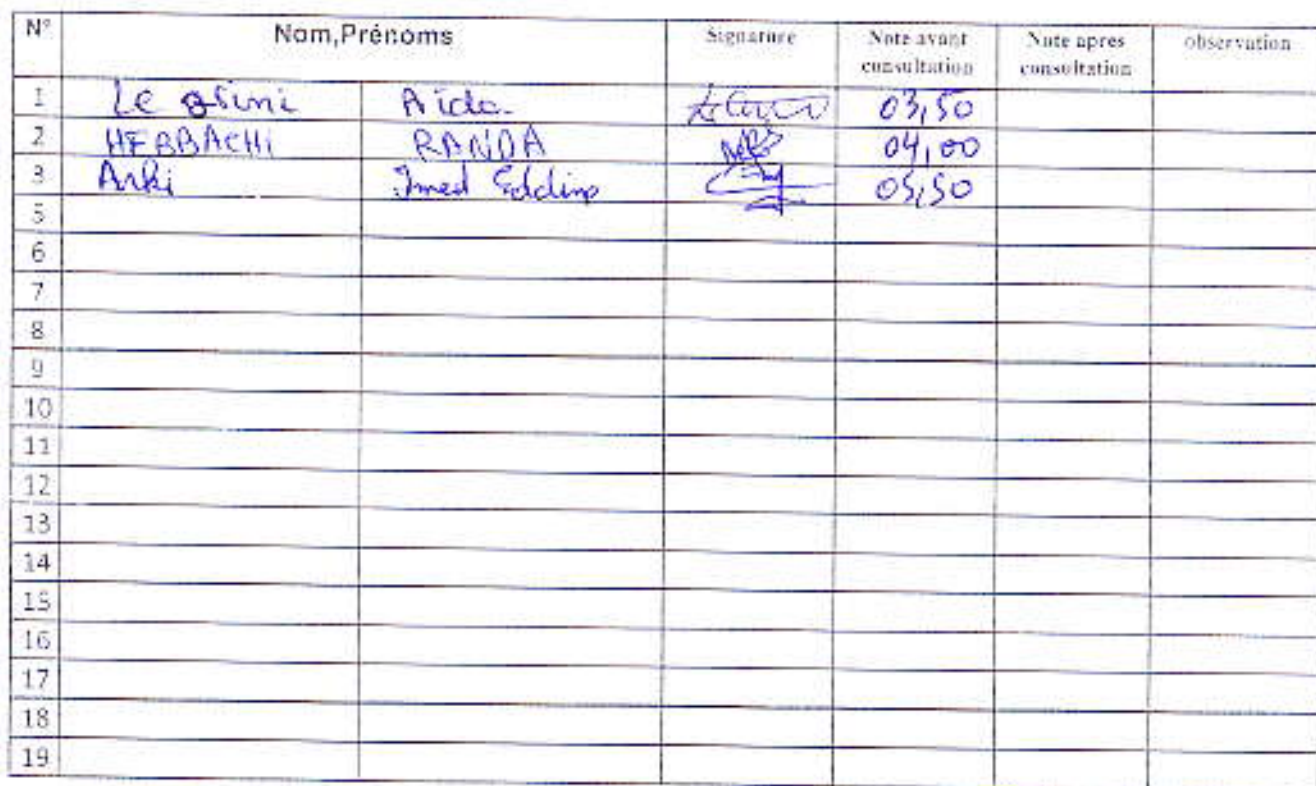 N° Nom,Prénoms Signature Note avant consultation Note apres consultation observation
1 Aida 03,50
2 HEBBACHI RANDA 04,00
3 Arki Imed Eddine 05,50
5
6
7
8
9
10
11
12
13
14
15
16
17
18
19